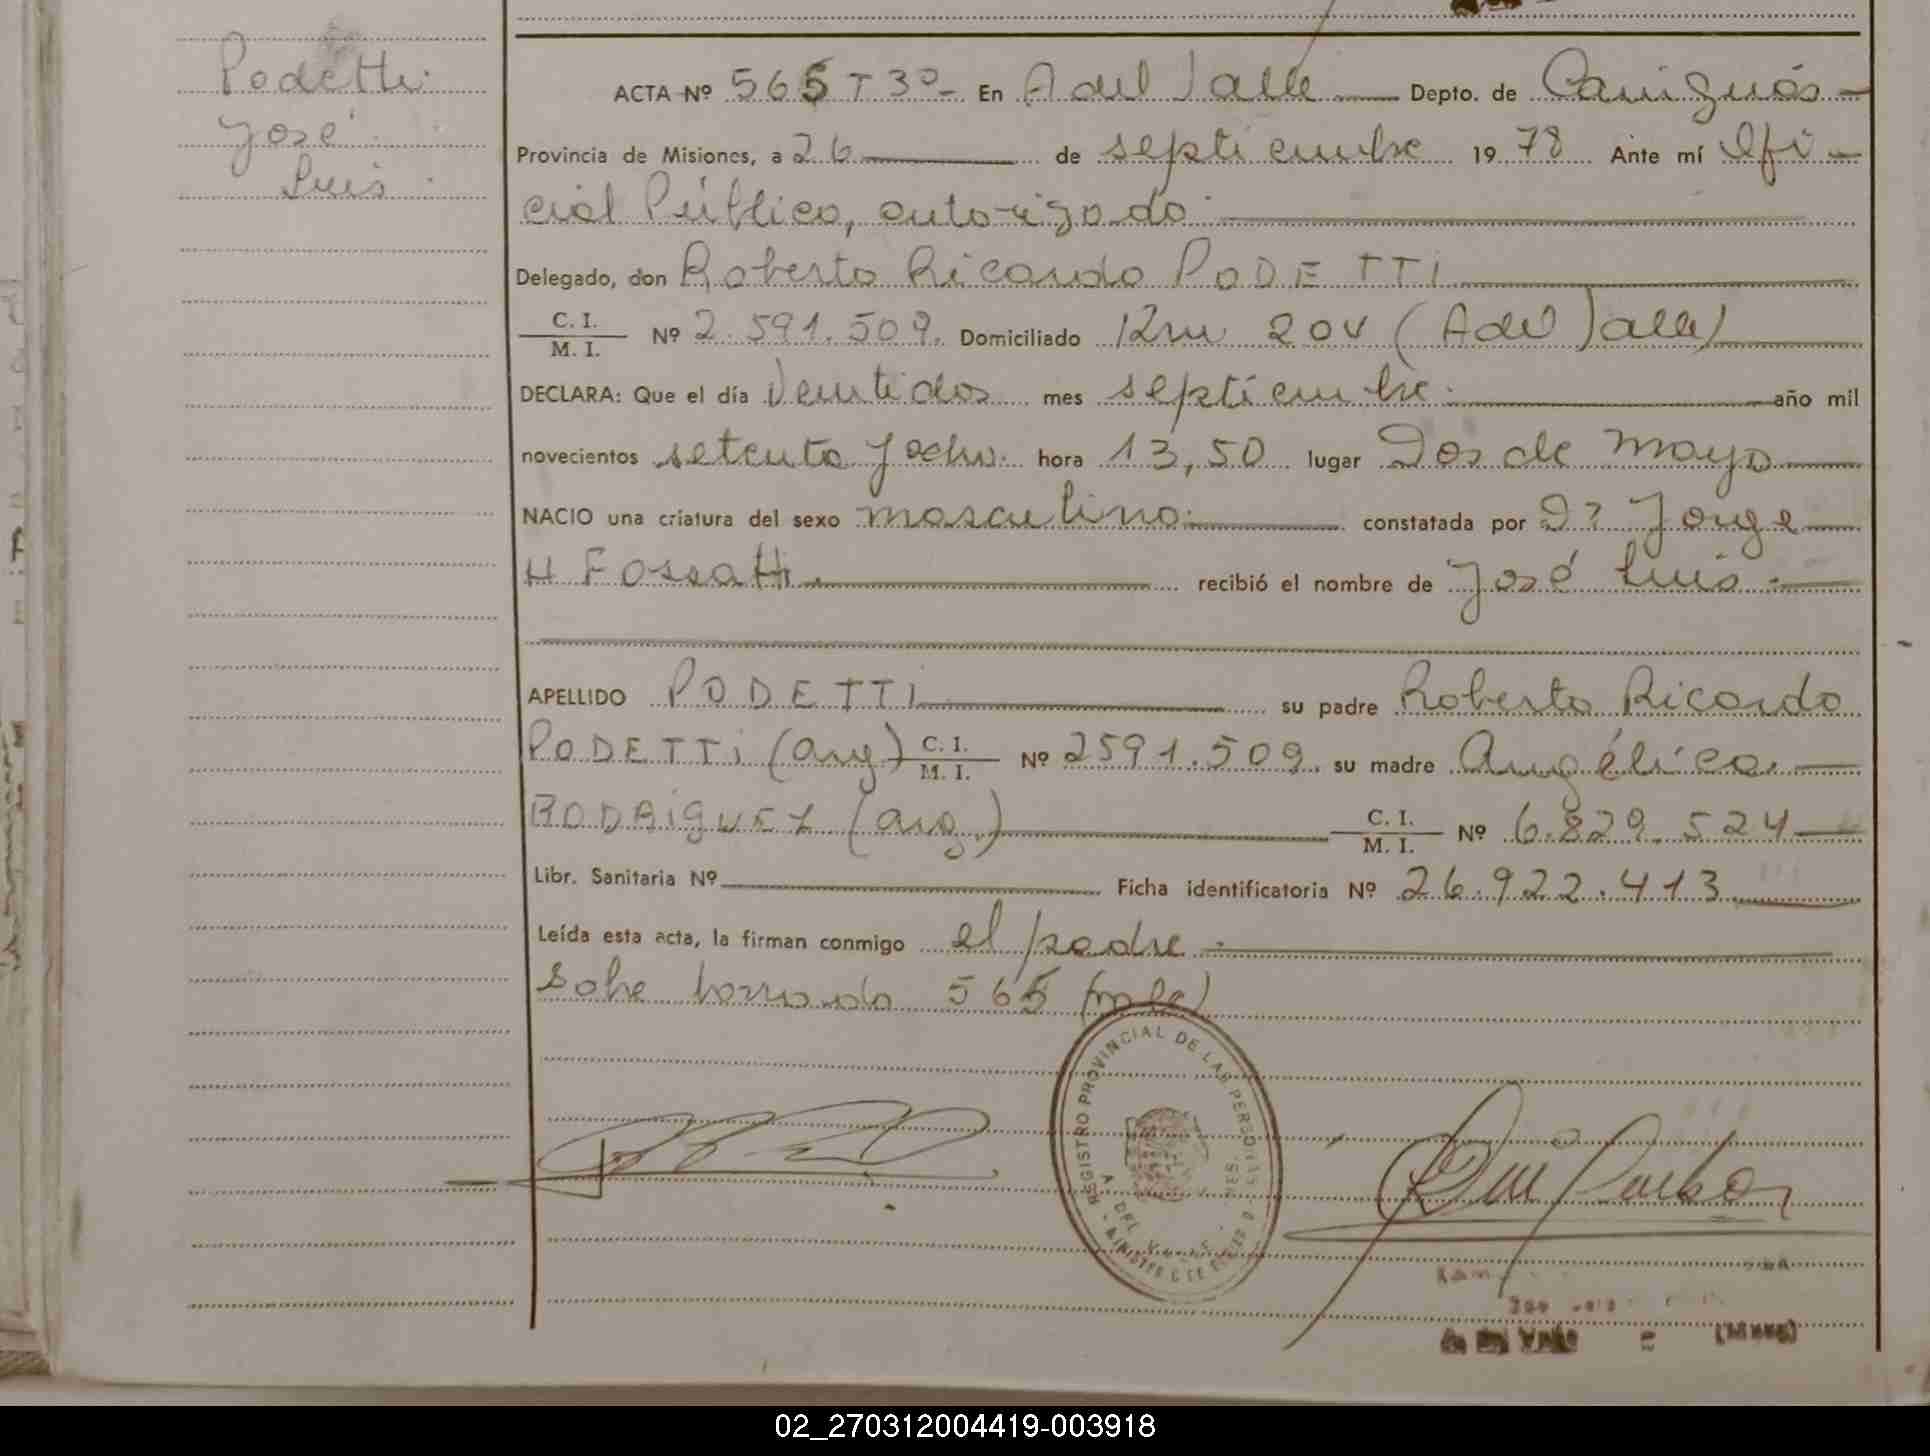 Podetti
José
Luis
ACTA Nº 565 T 3º En A del Valle Depto. de Cainguás
Provincia de Misiones, a 26 de septiembre 19 78 Ante mí Ofi-
cial Público, autorizado
Delegado, don Roberto Ricardo PODETTI
C. I.
M. I. Nº 2.591.509. Domiciliado Km 204 (A del Valle)
DECLARA: Que el día Veintidos mes septiembre año mil
novecientos setenta y ocho hora 13,50 lugar Dos de Mayo
NACIO una criatura del sexo masculino constatada por Dr Jorge
H Fossatti recibió el nombre de José Luis
APELLIDO PODETTI su padre Roberto Ricardo
PODETTI (arg) C. I.
M. I. Nº 2591.509 su madre Angélica
RODRIGUEZ (arg.) C. I.
M. I. Nº 6.829.524
Libr. Sanitaria Nº Ficha identificatoria Nº 26.922.413
Leída esta acta, la firman conmigo el padre
Sobre borrado 565 (vale)
REGISTRO PROVINCIAL DE LAS PERSONAS
A DEL VALLE
02_270312004419-003918